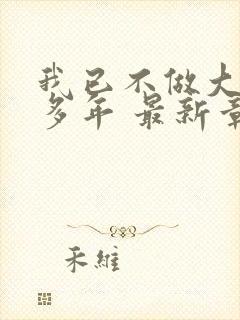 我已不做大
多年 最新章
禾維